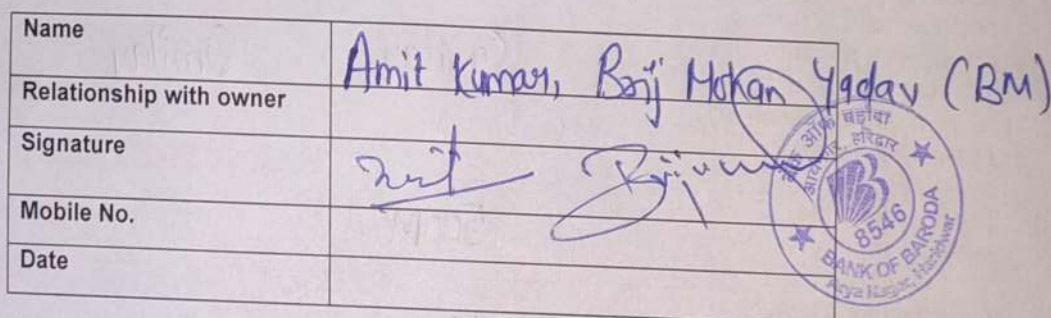 Name
Amit Kumar, Brij Mohan Yadav (BM)
Relationship with owner
Signature
Mobile No.
Date
बैंक ऑफ़ बड़ौदा
आर्य नगर, हरिद्वार
8546
BANK OF BARODA
Arya Nagar, Haridwar